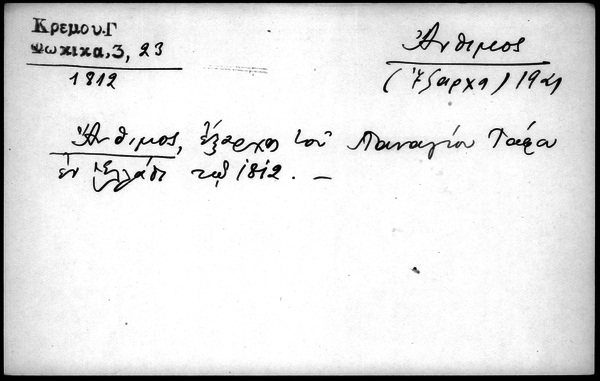 Κρεμου.Γ
Φωκικα, 3, 23
1812
Ἄνθιμος
(Ἔξαρχος)
Ἄνθιμος, ἔξαρχος τοῦ Παναγίου Τάφου
ἐν Ἑλλάδι τῷ 1812. –